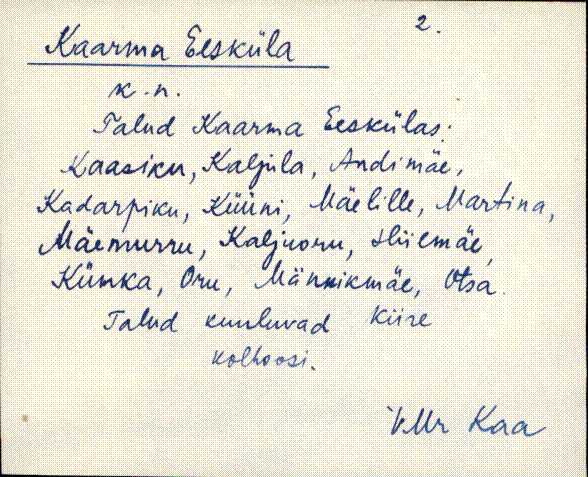 2.
Kaarma Eesküla
k.-n.
Talud Kaarma Eeskülas:
Kaasiku, Kaljula, Andimäe,
Kadarpiku, Küüni, Mäelille, Martina,
Mäemurru, Kaljuoru, Hiiemäe,
Künka, Oru, Männikmäe, Otsa.
Talud kuuluvad Kiire
kolhoosi.
VMr Kaa